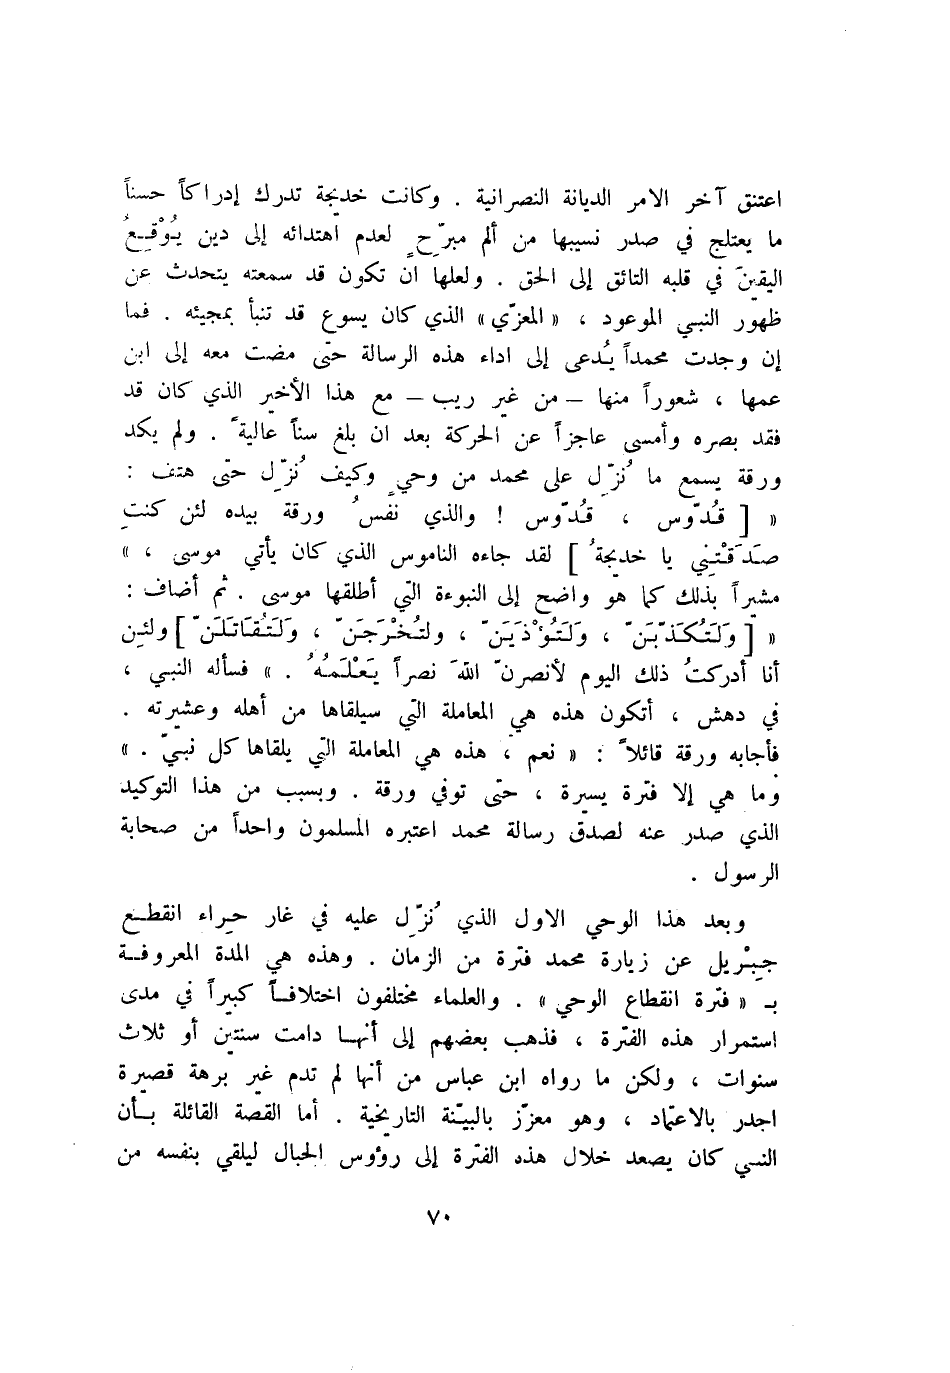 اعتنق آخر الامر الديانة النصرانية . وكانت خديجة تدرك إدراكاً حسناً
ما يعتلج في صدر نسيبها من ألم مبرّحٍ لعدم اهتدائه إلى دين يُوْقِعُ
اليقينَ في قلبه التائق إلى الحق . ولعلها ان تكون قد سمعته يتحدث عن
ظهور النبي الموعود ، « المعزّي » الذي كان يسوع قد تنبأ بمجيئه . فما
إن وجدت محمداً يُدعى إلى اداء هذه الرسالة حتى مضت معه إلى ابن
عمها ، شعوراً منها – من غير ريب – مع هذا الأخير الذي كان قد
فقد بصره وأمسى عاجزاً عن الحركة بعد ان بلغ سناً عالية ً . ولم يكد
ورقة يسمع ما نُزّل على محمد من وحيٍ وكيف نُزّل حتى هتف :
« [ قُدّوس ، قُدّوس ! والذي نفسُ ورقة بيده لئن كنتِ
صَدَقْتِني يا خديجةُ ] لقد جاءه الناموس الذي كان يأتي موسى ، »
مشيراً بذلك كما هو واضح إلى النبوءة التي أطلقها موسى . ثم أضاف :
« [ وَلَتُكَذَّبَنّ ، وَلَتُؤْذَيَنّ ، ولتُخْرَجَنّ ، وَلَتُقَاتَلَنّ ] ولئن
أنا أدركتُ ذلك اليوم لأنصرنّ اللهَ نصراً يَعْلَمُهُ . » فسأله النبي ،
في دهش ، أتكون هذه هي المعاملة التي سيلقاها من أهله وعشيرته .
فأجابه ورقة قائلاً : « نعم ، هذه هي المعاملة التي يلقاها كل نبيّ . »
وما هي إلا فترة يسيرة ، حتى توفي ورقة . وبسبب من هذا التوكيد
الذي صدر عنه لصدق رسالة محمد اعتبره المسلمون واحداً من صحابة
الرسول .
وبعد هذا الوحي الاول الذي نُزّل عليه في غار حراء انقطع
جِبْريل عن زيارة محمد فترة من الزمان . وهذه هي المدة المعروفة
بـ « فترة انقطاع الوحي » . والعلماء مختلفون اختلافاً كبيراً في مدى
استمرار هذه الفترة ، فذهب بعضهم إلى أنها دامت سنتين أو ثلاث
سنوات ، ولكن ما رواه ابن عباس من أنها لم تدم غير برهة قصيرة
اجدر بالاعتماد ، وهو معزّز بالبيّنة التاريخية . أما القصة القائلة بأن
النبي كان يصعد خلال هذه الفترة إلى رؤوس الجبال ليلقي بنفسه من
٧٠